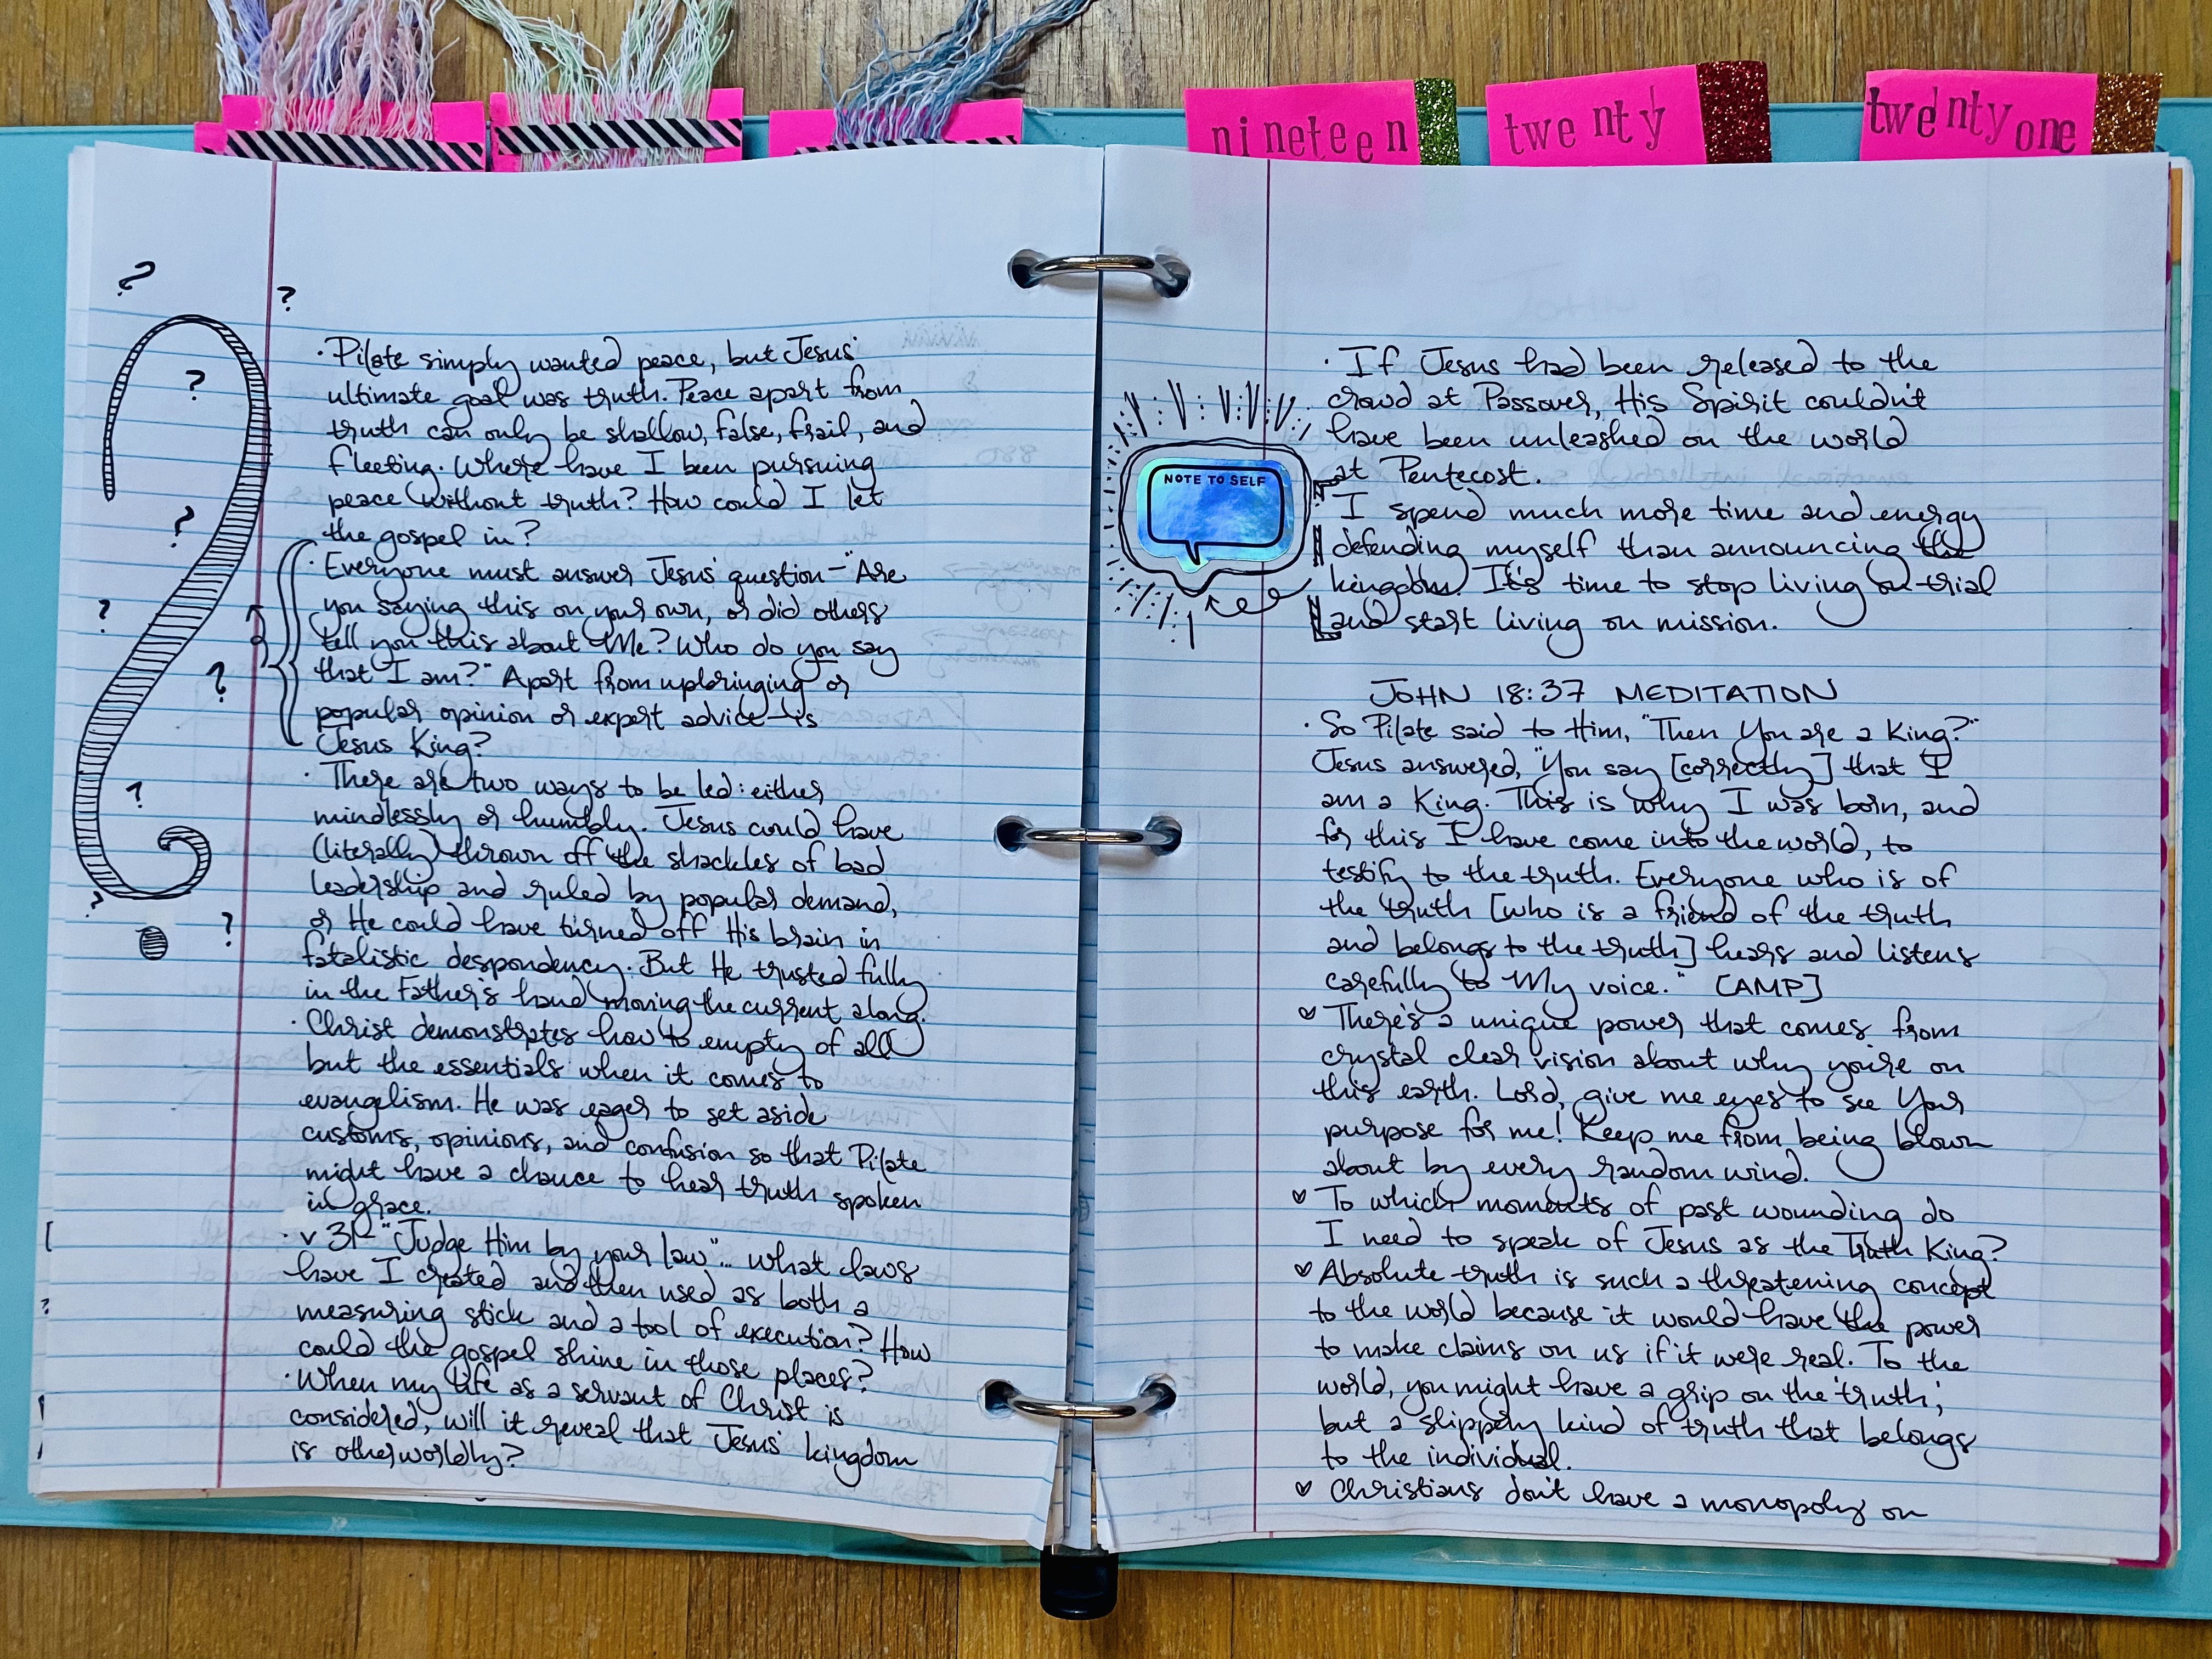 nineteen
twenty
twenty one
?
?
?
?
?
?
?
?
?
· Pilate simply wanted peace, but Jesus'
ultimate goal was truth. Peace apart from
truth can only be shallow, false, frail, and
fleeting. Where have I been pursuing
peace without truth? How could I let
the gospel in?
· Everyone must answer Jesus' question - "Are
you saying this on your own, or did others
tell you this about Me? Who do you say
that I am?" Apart from upbringing or
popular opinion or expert advice - is
Jesus King?
· There are two ways to be led: either
mindlessly or humbly. Jesus could have
(literally) thrown off the shackles of bad
leadership and ruled by popular demand,
or He could have turned off His brain in
fatalistic despondency. But He trusted fully
in the Father's hand moving the current along.
· Christ demonstrates how to empty of all
but the essentials when it comes to
evangelism. He was eager to set aside
customs, opinions, and confusion so that Pilate
might have a chance to hear truth spoken
in grace.
· v 31 - "Judge Him by your law"... what laws
have I created and then used as both a
measuring stick and a tool of execution? How
could the gospel shine in those places?
· When my life as a servant of Christ is
considered, will it reveal that Jesus' kingdom
is otherworldly?
NOTE TO SELF
· If Jesus had been released to the
crowd at Passover, His Spirit couldn't
have been unleashed on the world
at Pentecost.
I spend much more time and energy
defending myself than announcing the
kingdom. It's time to stop living on trial
and start living on mission.
JOHN 18:37 MEDITATION
· So Pilate said to Him, "Then You are a King?"
Jesus answered, "You say [correctly] that I
am a King. This is why I was born, and
for this I have come into the world, to
testify to the truth. Everyone who is of
the truth [who is a friend of the truth
and belongs to the truth] hears and listens
carefully to My voice." [AMP]
♡ There's a unique power that comes from
crystal clear vision about why you're on
this earth. Lord, give me eyes to see Your
purpose for me! Keep me from being blown
about by every random wind.
♡ To which moments of past wounding do
I need to speak of Jesus as the Truth King?
♡ Absolute truth is such a threatening concept
to the world because it would have the power
to make claims on us if it were real. To the
world, you might have a grip on the 'truth,'
but a slippery kind of truth that belongs
to the individual.
♡ Christians don't have a monopoly on